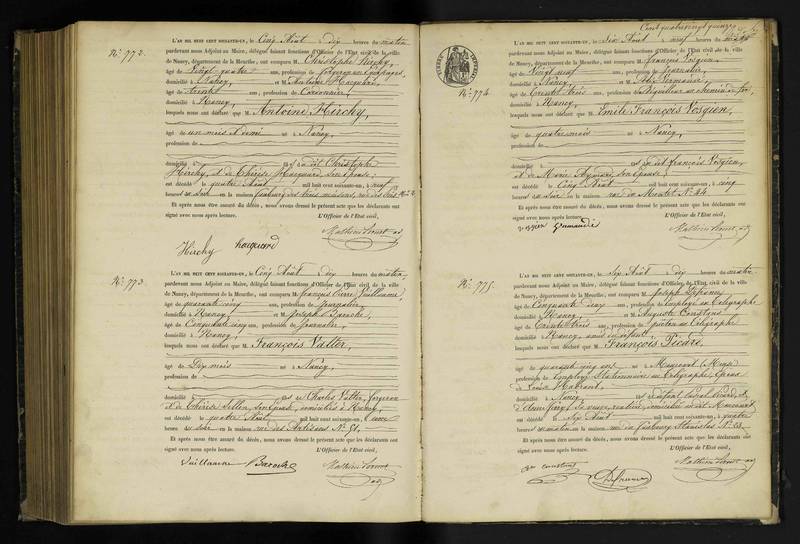 N.° 772.
L'AN MIL HUIT CENT SOIXANTE-UN, le Cinq Août, à dix heures du matin
pardevant nous Adjoint au Maire, délégué faisant fonctions d'Officier de l'Etat civil de la ville
de Nancy, département de la Meurthe, ont comparu M. Christophe Hirchy,
âgé de Vingt quatre ans, profession de
domicilié à Nancy, et M. Antoine Hacquard,
âgé de trente ans, profession de Cordonnier,
domicilié à Nancy,
lesquels nous ont déclaré que M. Antoine Hirchy,
âgé de un mois et demi né à Nancy,
profession de
domicilié à fils du dit Christophe
Hirchy, et de Thérèse Hacquard, son épouse,
est décédé le quatre Août mil huit cent soixante-un, à neuf
heures du soir en la maison faubourg des trois maisons,
Et après nous être assuré du décès, nous avons dressé le présent acte que les déclarants ont
signé avec nous après lecture. L'Officier de l'Etat civil,
Hirchy hacquard
N.° 773
L'AN MIL HUIT CENT SOIXANTE-UN, le Cinq Août, à dix heures du matin,
pardevant nous Adjoint au Maire, délégué faisant fonctions d'Officier de l'Etat civil de la ville
de Nancy, département de la Meurthe, ont comparu M. François Pierre Vuillaume,
âgé de quarante cinq ans, profession de Journalier,
domicilié à Nancy et M. Joseph Baroche,
âgé de Cinquante cinq ans, profession de Journalier,
domicilié à Nancy,
lesquels nous ont déclaré que M. François Valter,
âgé de Dix mois né à Nancy,
profession de
domicilié à fils de Charles Valter, forgeron
et de Thérèse son épouse, domiciliés à Nancy,
est décédé le quatre Août mil huit cent soixante-un, à onze
heures du soir en la maison rue des Artisans N.° 51,
Et après nous être assuré du décès, nous avons dressé le présent acte que les déclarants ont
signé avec nous après lecture. L'Officier de l'Etat civil,
Vuillaume Baroche
Cent quatre vingt quinze
N.° 774.
L'AN MIL HUIT CENT SOIXANTE-UN, le Six Août, à neuf heures du matin
pardevant nous Adjoint au Maire, délégué faisant fonctions d'Officier de l'Etat civil de la ville
de Nancy, département de la Meurthe, ont comparu M. François Vosgien,
âgé de Vingt neuf ans, profession de Journalier,
domicilié à Nancy, et M.
âgé de trente trois ans, profession de Aiguilleur au chemin de fer,
domicilié à Nancy,
lesquels nous ont déclaré que M. Emile François Vosgien,
âgé de quatre mois né à Nancy,
profession de
domicilié à fils du dit François Vosgien,
et de Marie son épouse,
est décédé le Cinq Août mil huit cent soixante-un, à cinq
heures du soir en la maison rue du N.° 44
Et après nous être assuré du décès, nous avons dressé le présent acte que les déclarants ont
signé avec nous après lecture. L'Officier de l'Etat civil,
N.° 775.
L'AN MIL HUIT CENT SOIXANTE-UN, le Six Août, à dix heures du matin
pardevant nous Adjoint au Maire, délégué faisant fonctions d'Officier de l'Etat civil de la ville
de Nancy, département de la Meurthe, ont comparu M. Joseph
âgé de Cinquante ans, profession de Employé au Télégraphe
domicilié à Nancy, et M. Auguste Constant
âgé de trente trois ans, profession de au Télégraphe
domicilié à Nancy,
lesquels nous ont déclaré que M. François Picard,
âgé de quarante cinq ans né à (Meuse)
profession de Employé Stationnaire au Télégraphe, époux
de Louise
domicilié à Nancy,
est décédé le Six Août mil huit cent soixante-un, à quatre
heures du matin en la maison rue du faubourg Stanislas N.° 53
Et après nous être assuré du décès, nous avons dressé le présent acte que les déclarants ont
signé avec nous après lecture. L'Officier de l'Etat civil,